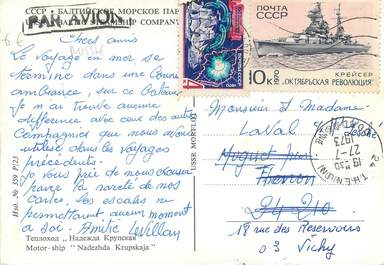 СССР БАЛТИЙСКОЕ МОРСКОЕ ПА
PAR AVION
COMPAN
Chers amis
Le voyage en mer se
termine dans une bonne
ambiance, sur ce bateau
Je n'ai trouvé aucune
différence avec ceux des autres
Compagnies que nous avons
utilisé dans les voyages
précédents.
Je vous prie de nous
la rareté de nos
cartes, les escales ne
permettant aucun moment
à soi. Amitié Levillan
Изд. № 539 Р/23
USSR
Теплоход „Надежда Крупская"
Motor-ship "Nadezhda Krupskaja"
4
ПОЧТА
СССР
10К
1970
КРЕЙСЕР
„ОКТЯБРЬСКАЯ РЕВОЛЮЦИЯ"
Monsieur et Madame
Laval
Muguet
Thenon
24 210
18 rue des Réservoirs
03 Vichy
24 THENON
19 H30
27-7
1973